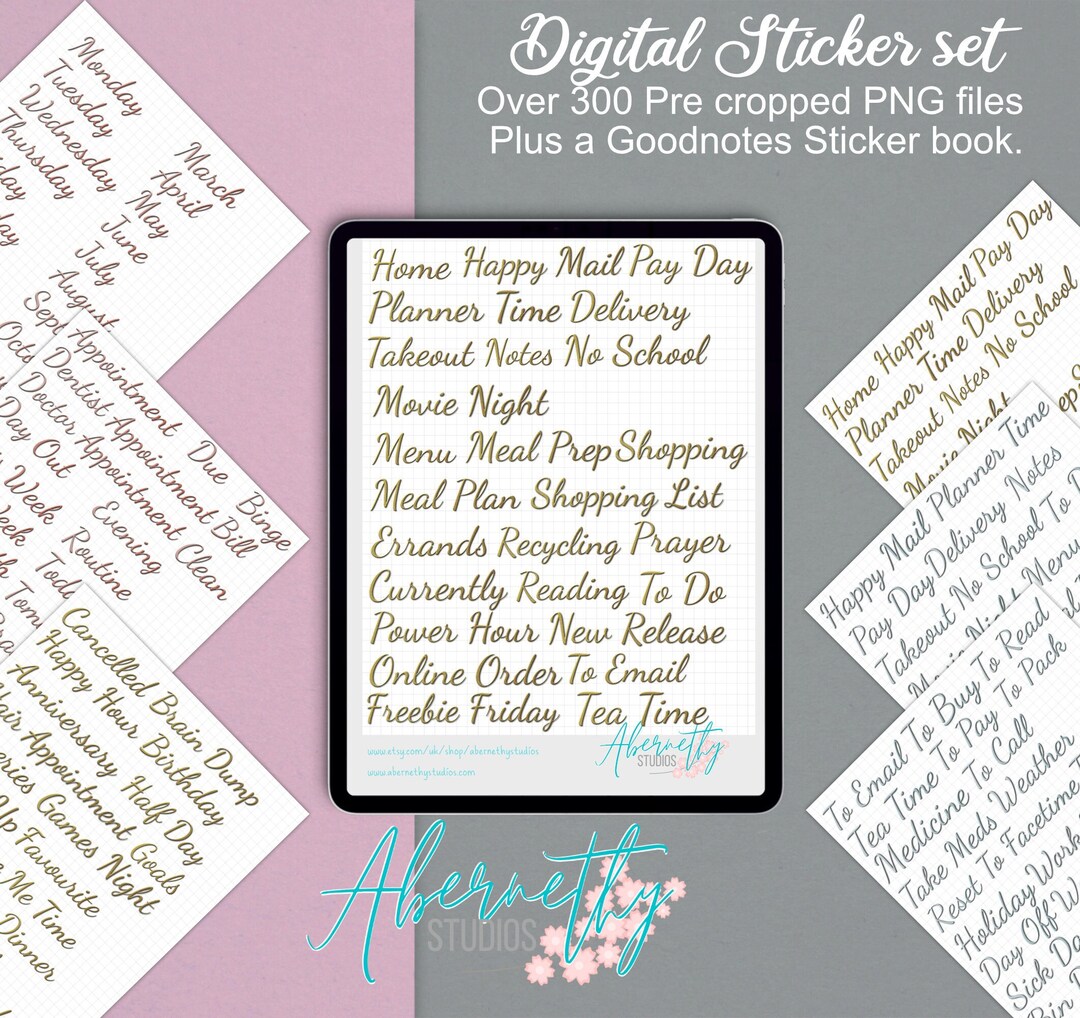 Digital Sticker set
Over 300 Pre cropped PNG files
Plus a Goodnotes Sticker book.
Monday
Tuesday
Wednesday
Thursday
March
April
May
June
July
August
Appointment Due Binge
Dentist Appointment Bill
Doctor Appointment Clean
Day Out Evening
Week Routine
Cancelled Brain Dump
Happy Hour Birthday
Anniversary Half Day
Appointment Goals
Games Night
Up Favourite
Me Time
Dinner
Home Happy Mail Pay Day
Planner Time Delivery
Takeout Notes No School
Movie Night
Menu Meal Prep Shopping
Meal Plan Shopping List
Errands Recycling Prayer
Currently Reading To Do
Power Hour New Release
Online Order To Email
Freebie Friday Tea Time
www.etsy.com/uk/shop/abernethystudios
www.abernethystudios.com
Abernethy
STUDIOS
Home Happy Mail Pay Day
Planner Time Delivery
Takeout Notes No School
Movie Night
Happy Mail Planner Time
Pay Day Delivery Notes
Takeout No School To
Menu
To Email To Buy To Read
Tea Time To Pay To Pack
Medicine To Call
Take Meds Weather
Reset To Facetime
Holiday Work
Day Off
Sick Day
Bin
Abernethy
STUDIOS